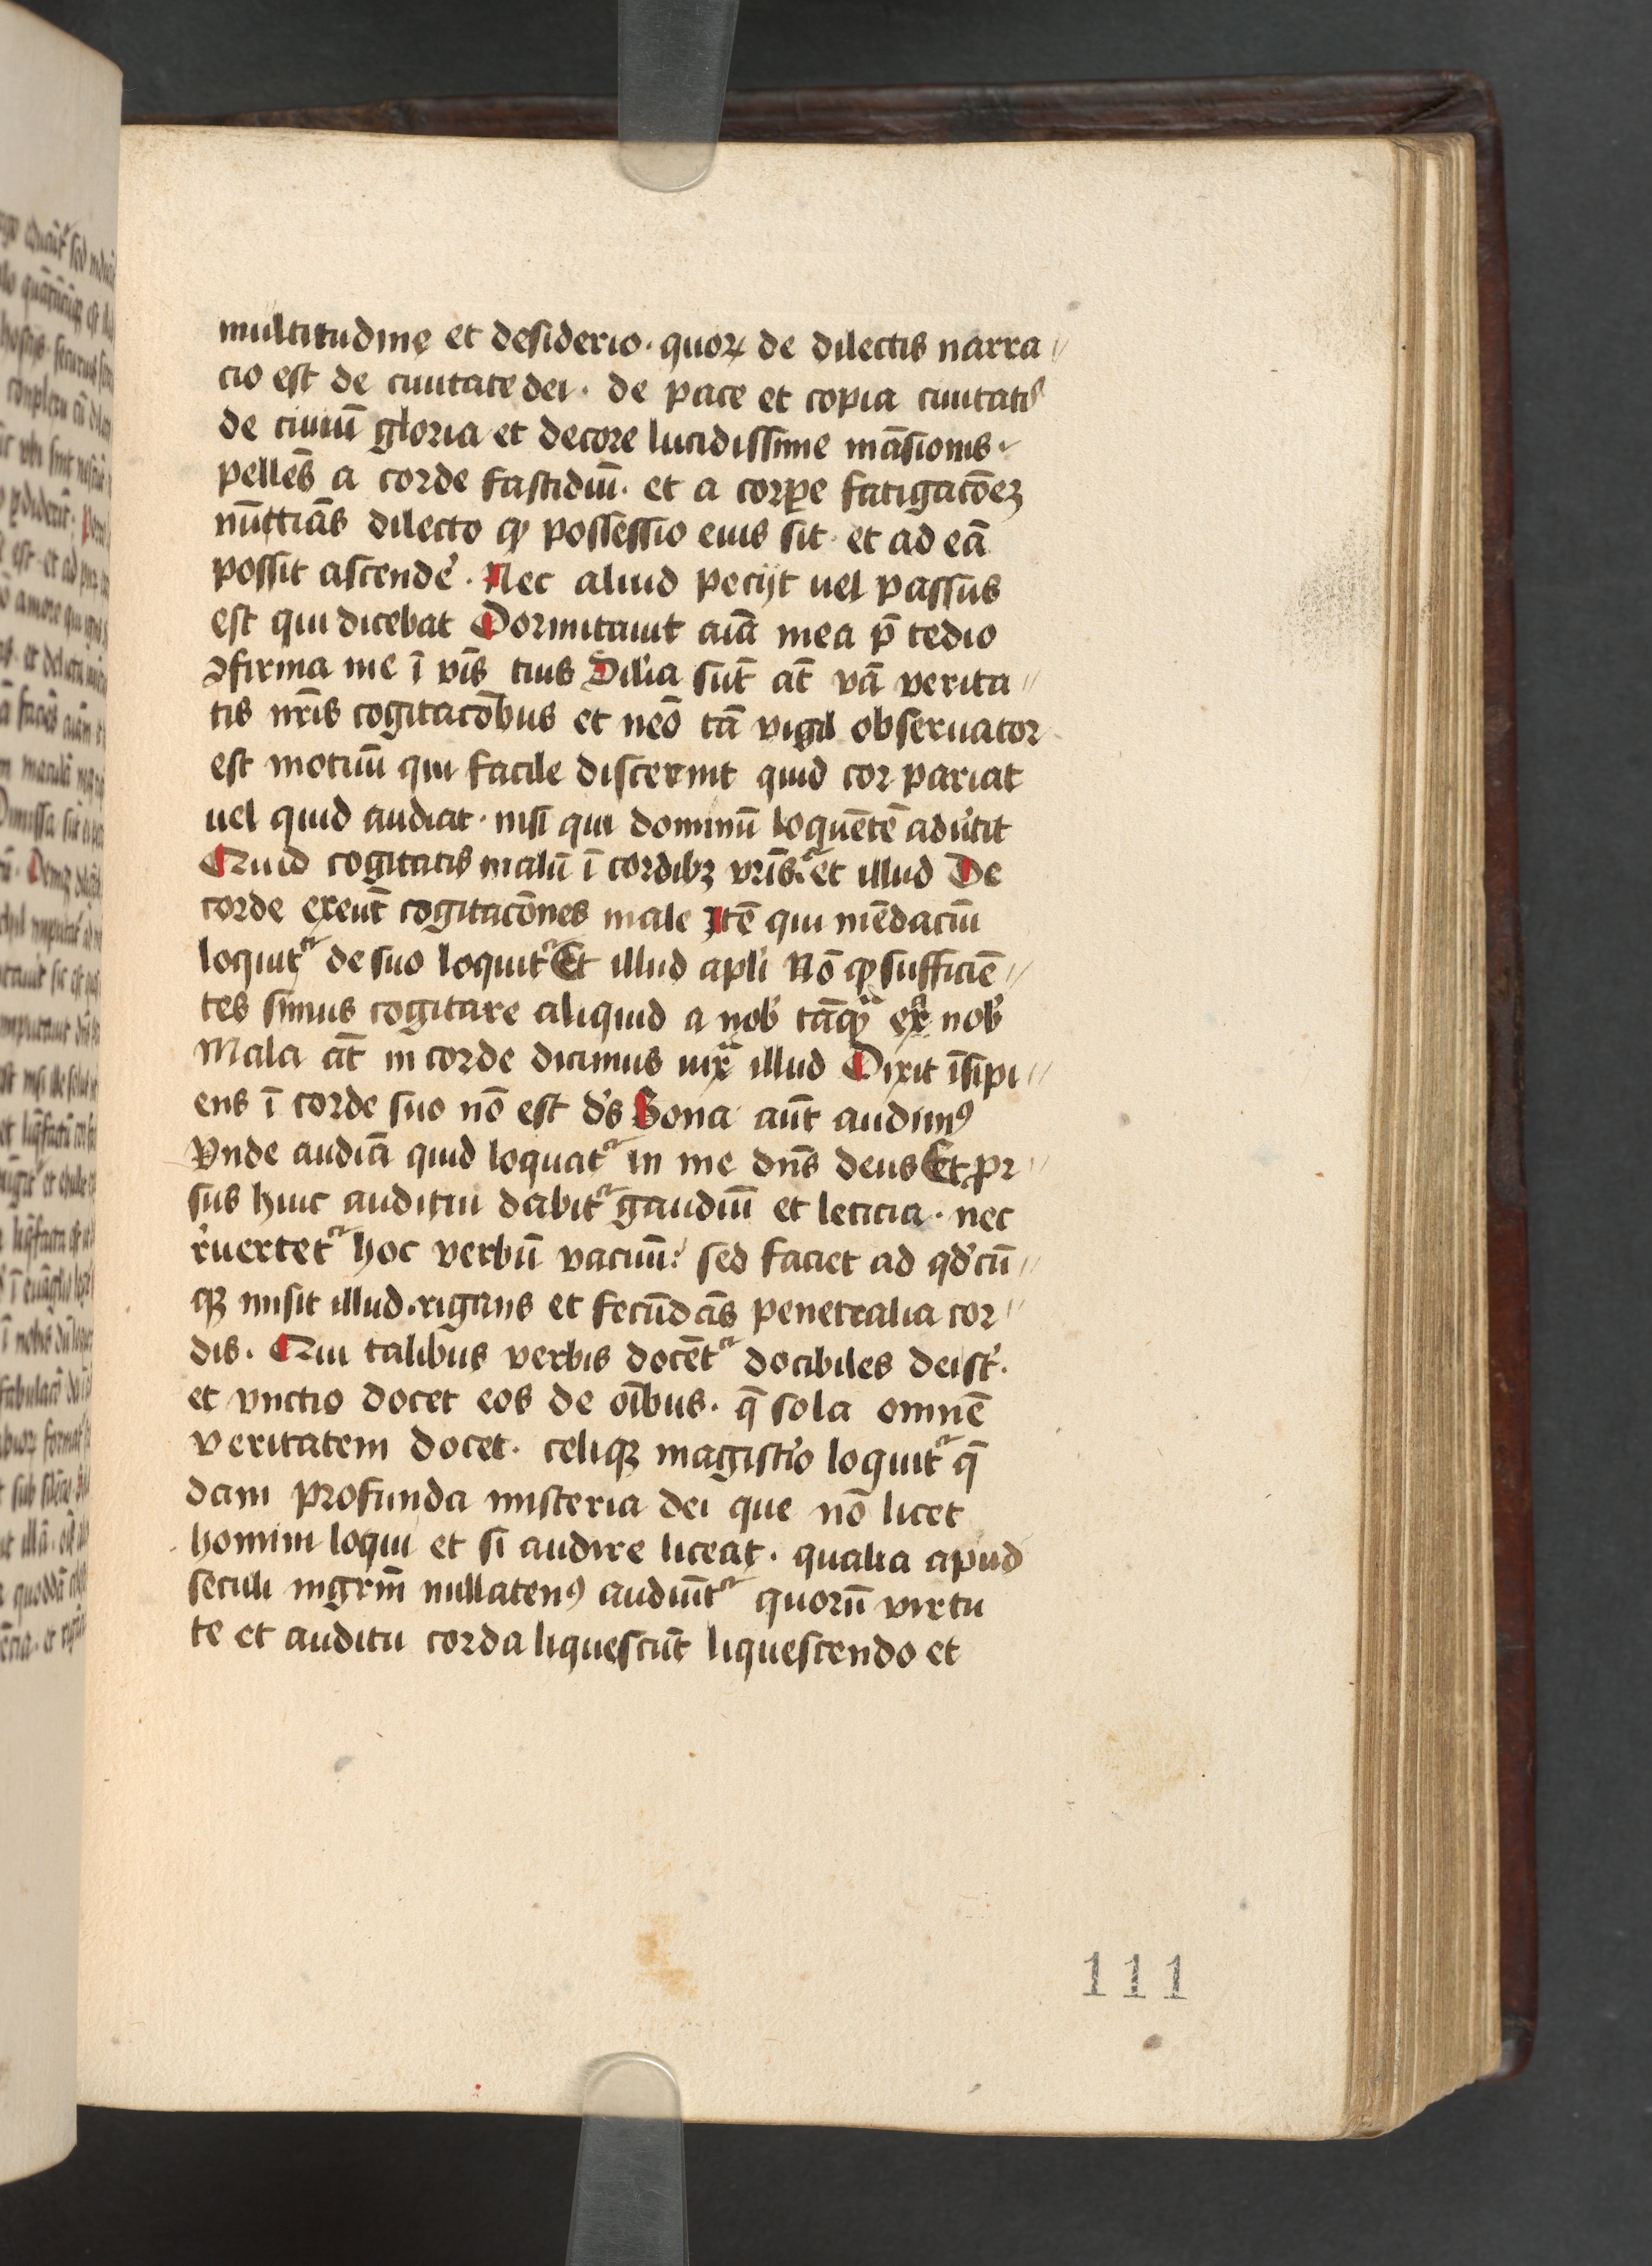 multitudine et desiderio · quoꝝ de dilectis narra//
cio est de ciuitate dei · de pace et copia ciuitatis
de ciuiū gloria et decore lucidissime māsionis ·
pellēs a corde fastidiū · et a corꝑe fatigacōeꝫ
nūttiās dilecto ꝙ possessio eius sit · et ad eā
possit ascende᷑ · Nec aliud pecijt uel passus
est qui dicebat Dormitauit aīa mea p̄ tedio
ꝯfirma me ī v̄bis tuis Dilīa sūt āt vā verita//
tis nr̄is cogitacōbus et nēo tā vigil obseruator
est motiuū qui facile discernit quid cor pariat
uel quid audiat · nisi qui dominū loquētē adu᷑tit
Quid cogitatis malū ī cordibꝫ vr̄is · et illud De
corde exeūt cogitacōnes male Itē qui mēdaciū
loquit᷑ de suo loquit᷑ Et illud apl̄i Nō ꝙ sufficiē//
tes simus cogitare aliquid a nob᷑ tāꝙᷓ ex nob᷑
Mala āt in corde dicimus iuxᷓ illud Dixit īsipi//
ens ī corde suo nō est ds̄ Bona aūt audimꝰ
Vnde audiā quid loquat᷑ in me dn̄s deus Et pr//
sus huic auditui dabit᷑ gaudiū et leticia · nec
r᷑uertet᷑ hoc verbū vacuū : sed faciet ad qd᷑cū//
qꝫ misit illud · rigans et fecūdās penetralia cor//
dis · Qui talibus verbis docēt᷑ docibiles dei st᷑ ·
et vnctio docet eos de oībus · q̄ sola omnē
veritatem docet · celiqꝫ magist᷑io loquit᷑ q̄
dam profunda misteria dei que nō licet
homini loqui et si audire liceat · qualia apud
seculi mgr̄m nullatenꝰ audiūt᷑ quorū virtu
te et auditu corda liquescūt liquescendo et
111